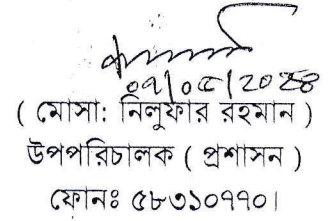 ( মোসা: নিলুফার রহমান )
উপপরিচালক ( প্রশাসন )
ফোনঃ ৫৮৩১০৭৭০।